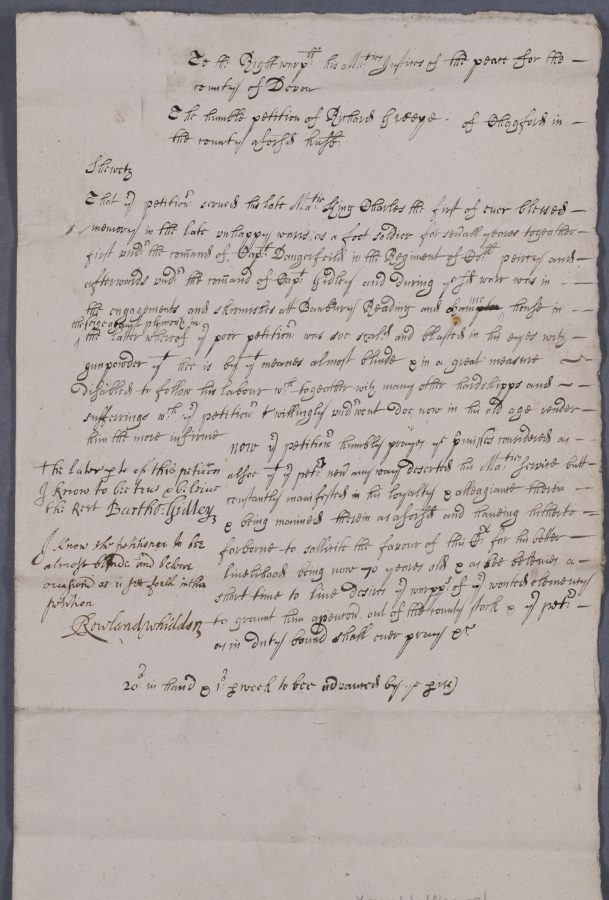 To the Right worpll his Ma:ties Justices of the peace for the
county of Devon
The humble petition of Richard Greepe of Chagford in
the county aforesd husb:
Sheweth
That yr petitionr served his late Matie King Charles the first of ever blessed
memory in the late unhappy warrs, as a foot soldier for severall yeares together
first undr the comand of Capt Dangerfeild in the Regiment of Coll peircy and
afterwards undr the comand of Capt Gidley and during ye sd warr was in
the engagements and skirmishes att Banbury Reading and house in
the seige against plymouth in
the latter whereof yr poor petitionr was soe scal'd and blasted in his eyes with
gunpowder yt hee is by yt meanes almost blinde & in a great measure
disabled to follow his labour wch together with many other hardshipps and
sufferrings wch yr petitionr willingly undrwent Doe now in his old age render
him the more infirme
Now yr petitionr humbly prayes ye pmisses considered as
alsoe yt yr petr never any wayes deserted his Maties service butt
constantly manifested in his loyalty & alleagiance therein
& being maimed therein as aforesd and haveing hitherto
forborne to sollicite the favour of this Crt for his better
livelihood being now 70 yeares old & as hee beleives a
short time to live Desires yr worpps of yr wonted clemency
to graunt him a pencon out of the county stock & yr petr
as in duty bound shall ever pray &c
The later pte of this peticon
I know to bee true & beleive
the Rest Bartho: Gidley
I know the petitioner to be
almost blinde and beleive
occasioned as is sett forth in the
petition
Rowland Whiddon
20s in hand & 1s p week to bee advanced by ye